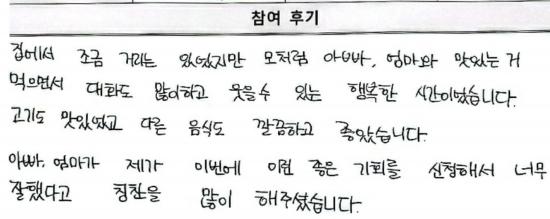 참여 후기
집에서 조금 거리는 있었지만 모처럼 아빠, 엄마와 맛있는 거
먹으면서 대화도 많이하고 웃을수 있는 행복한 시간이었습니다.
고기도 맛있었고 다른 음식도 깔끔하고 좋았습니다.
아빠, 엄마가 제가 이번에 이런 좋은 기회를 신청해서 너무
잘했다고 칭찬을 많이 해주셨습니다.